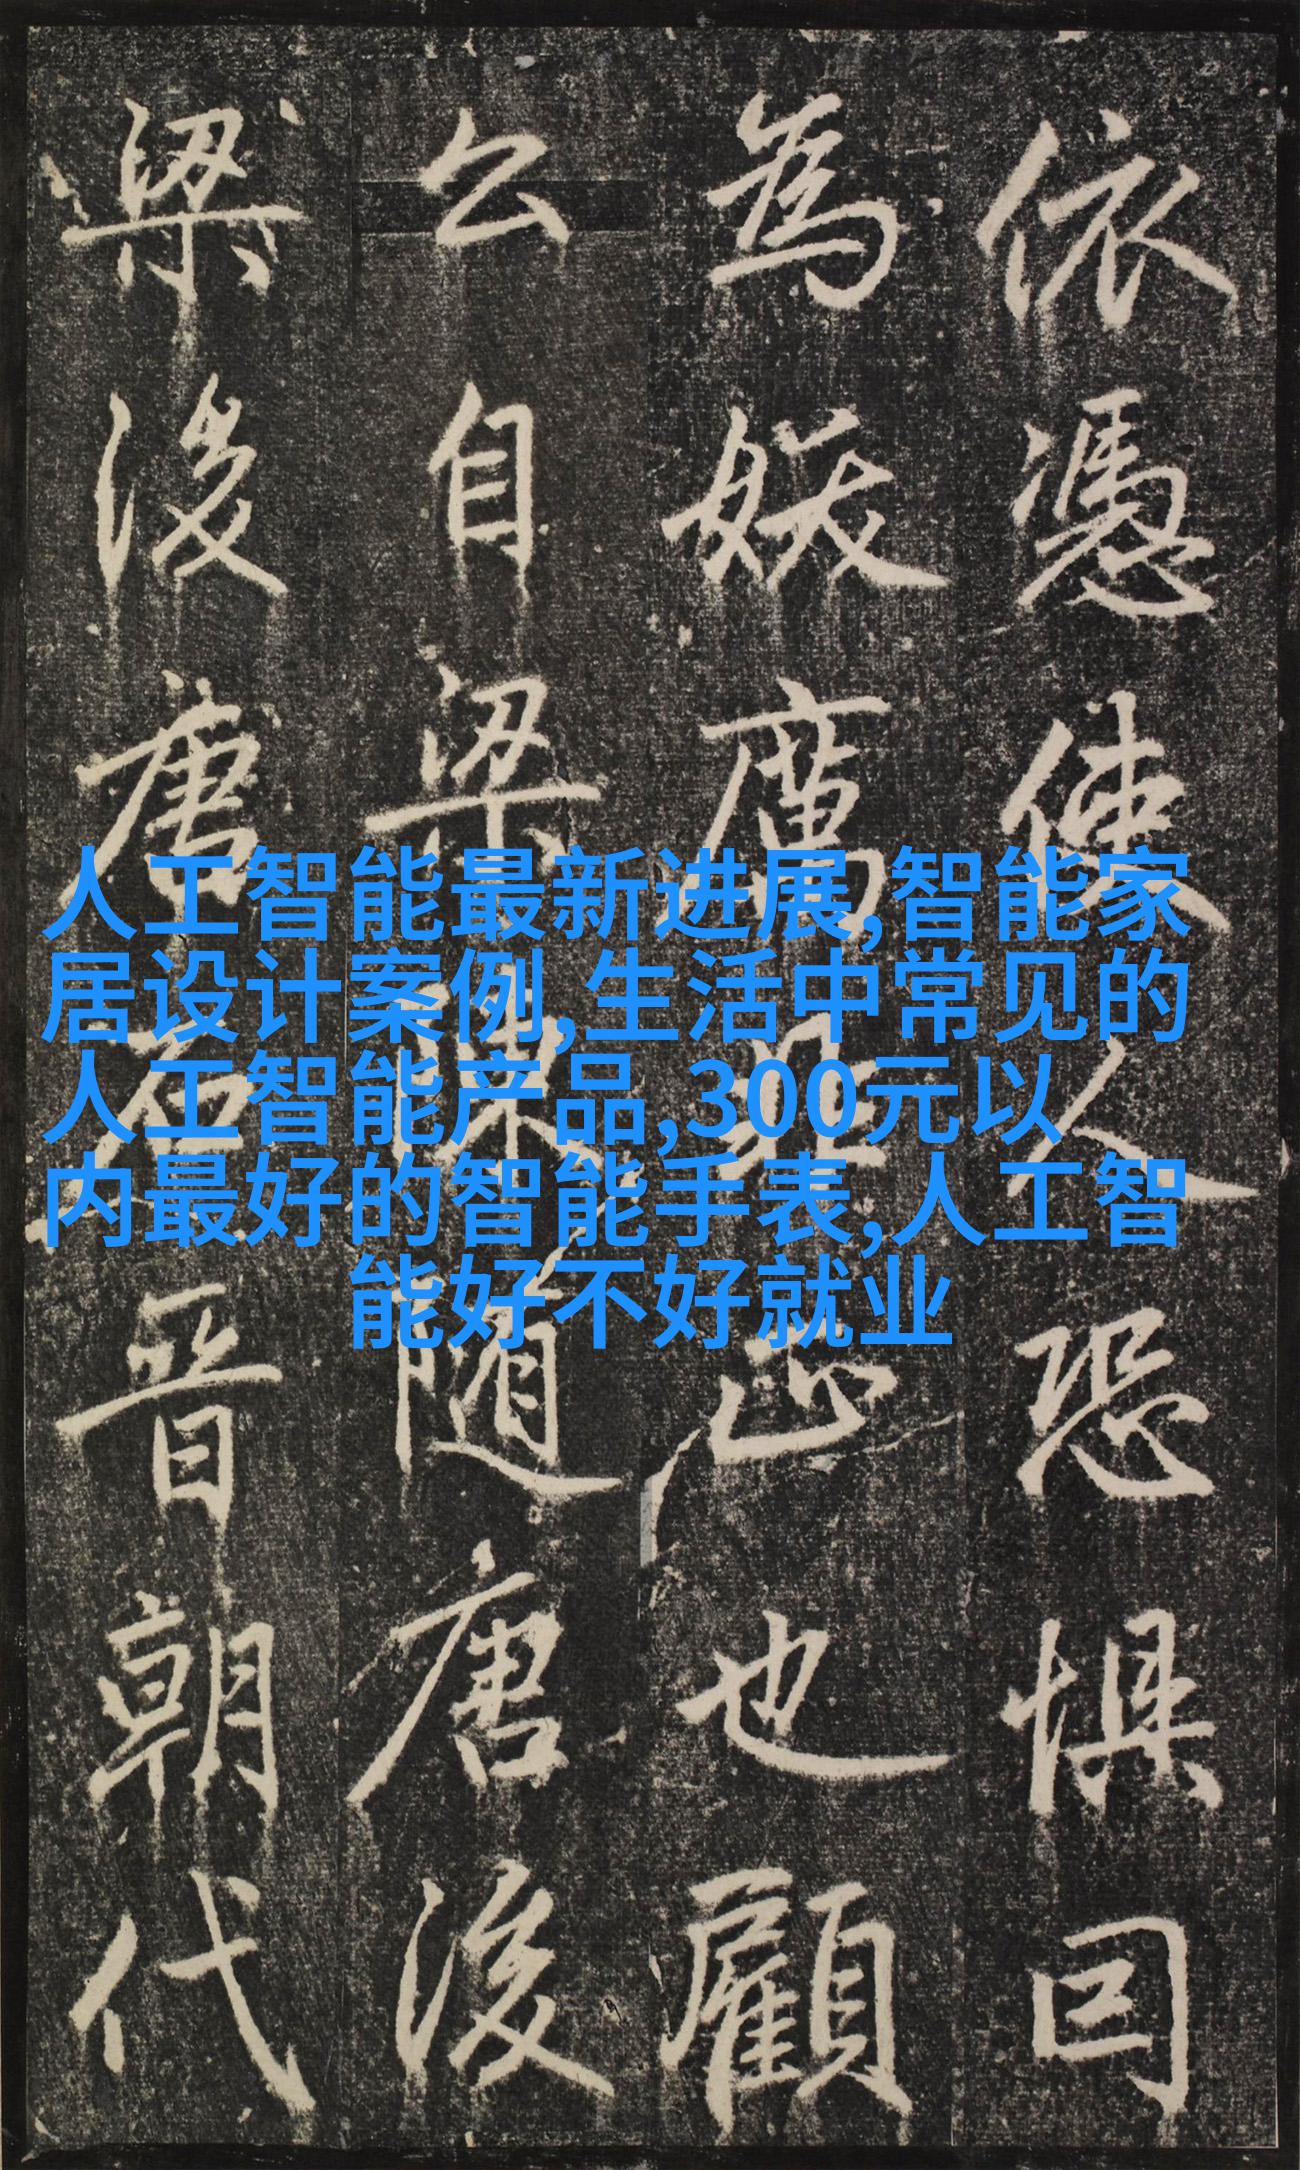 依憑使人恐惧囙
為妖厲非正也顧
公自梁陳随唐後
梁後唐石晉朝代
人工智能最新进展,智能家
居设计案例,生活中常见的
人工智能产品,300元以
内最好的智能手表,人工智
能好不好就业